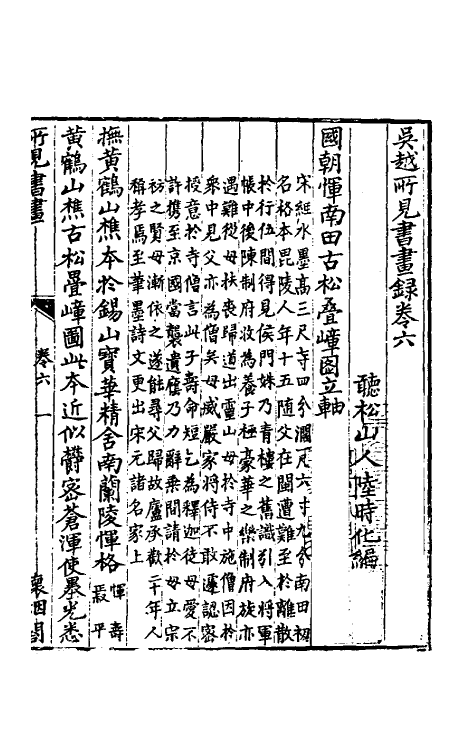 吳越所見書畫錄卷六
聽松山人陸時化編
國朝惲南田古松叠嶂圖立軸
宋經水墨高三尺寺四分濶尺六寸九分南田初
名格本毘陵人年十五随父在閩遭難至於離散
於行伍間得見侯門姝乃青樓之舊識引入將軍
帳中後陳制府收為養子極豪華之樂制府族亦
遇難從母扶喪歸道出靈山母於寺中施僧因於
衆中見父亦為僧矣母威嚴家將侍不敢遽認密
授意於寺僧言此子壽命短乞為釋迦徒母愛不
許携至京國當襲遺廕乃力辭乗間請於母立宗
祊之賢母漸依之遂能尋父歸故廬承歡二十年人
稱孝焉至華墨詩文更出宋元諸名家上
撫黃鶴山樵本於錫山寶華精舍南蘭陵惲格 惲壽 叚平
黃鶴山樵古松疊嶂圖此本近似欝密蒼渾使墨光悉
所見書畫 卷六 一 襄四閣